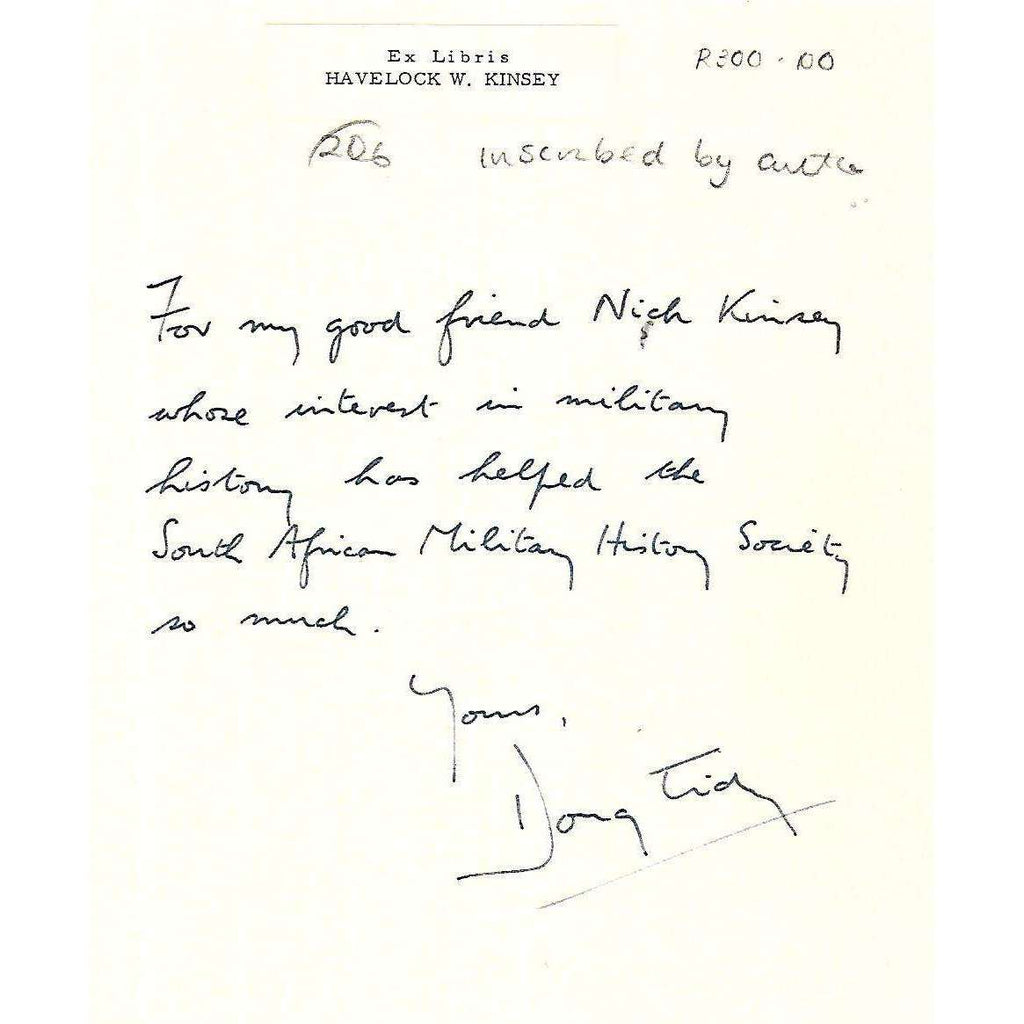 Ex Libris
HAVELOCK W. KINSEY
R300-00
inscribed by
For my good friend Nick Kinsey
whose interest in military
history has helped the
South African Military History Society
so much.
Yours,
Doug Tidy